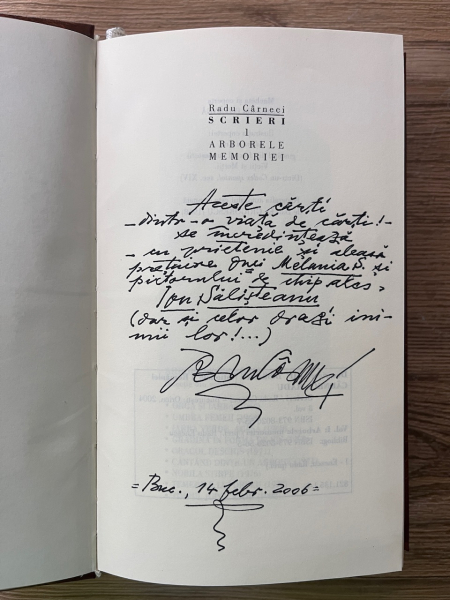 Radu Cârneci
SCRIERI
1
ARBORELE
MEMORIEI
Aceste cărți
– dintr-o viață de cărți! –
se încredințează
– cu prietenie și aleasă
prețuire D-nei Melania S. și
pictorului de chip ales,
Ion Sălișteanu
(dar și celor dragi ini-
mii lor!...)
= Buc., 14 febr. 2006 =